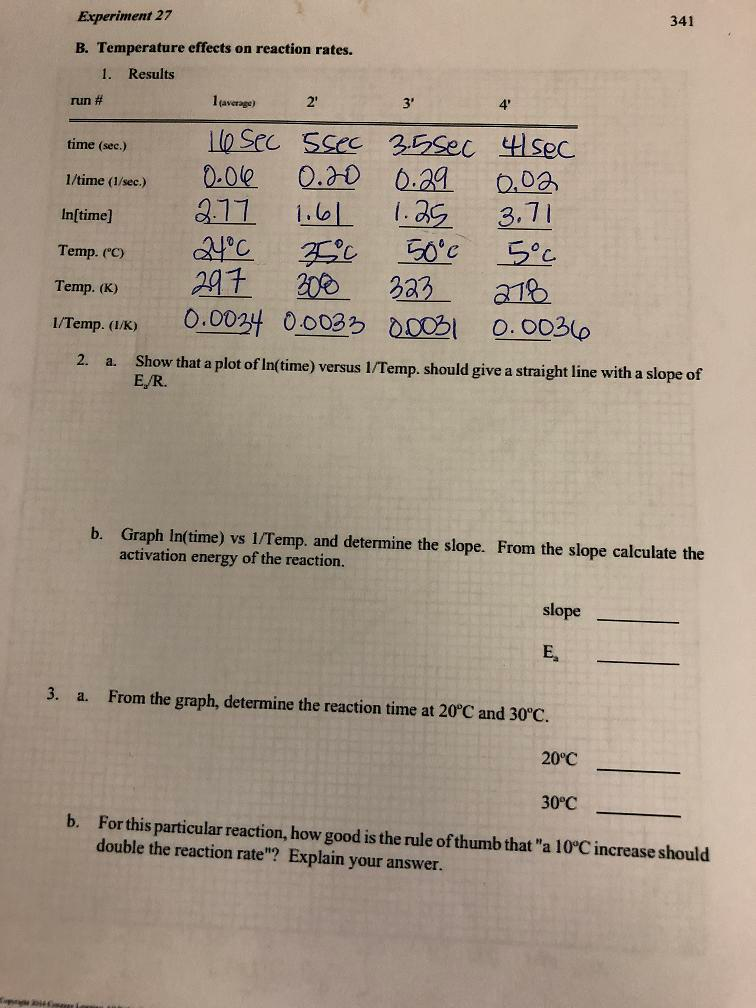 Experiment 27 341
B. Temperature effects on reaction rates.
1. Results
run # 1(average) 2' 3' 4'
time (sec.) 16 sec 5 sec 3.5 sec 41 sec
1/time (1/sec.) 0.06 0.20 0.29 0.02
ln[time] 2.77 1.61 1.25 3.71
Temp. (°C) 24°C 35°C 50°C 5°C
Temp. (K) 297 308 323 278
1/Temp. (1/K) 0.0034 0.0033 0.0031 0.0036
2. a. Show that a plot of ln(time) versus 1/Temp. should give a straight line with a slope of
Ea/R.
b. Graph ln(time) vs 1/Temp. and determine the slope. From the slope calculate the
activation energy of the reaction.
slope
Ea
3. a. From the graph, determine the reaction time at 20°C and 30°C.
20°C
30°C
b. For this particular reaction, how good is the rule of thumb that "a 10°C increase should
double the reaction rate"? Explain your answer.